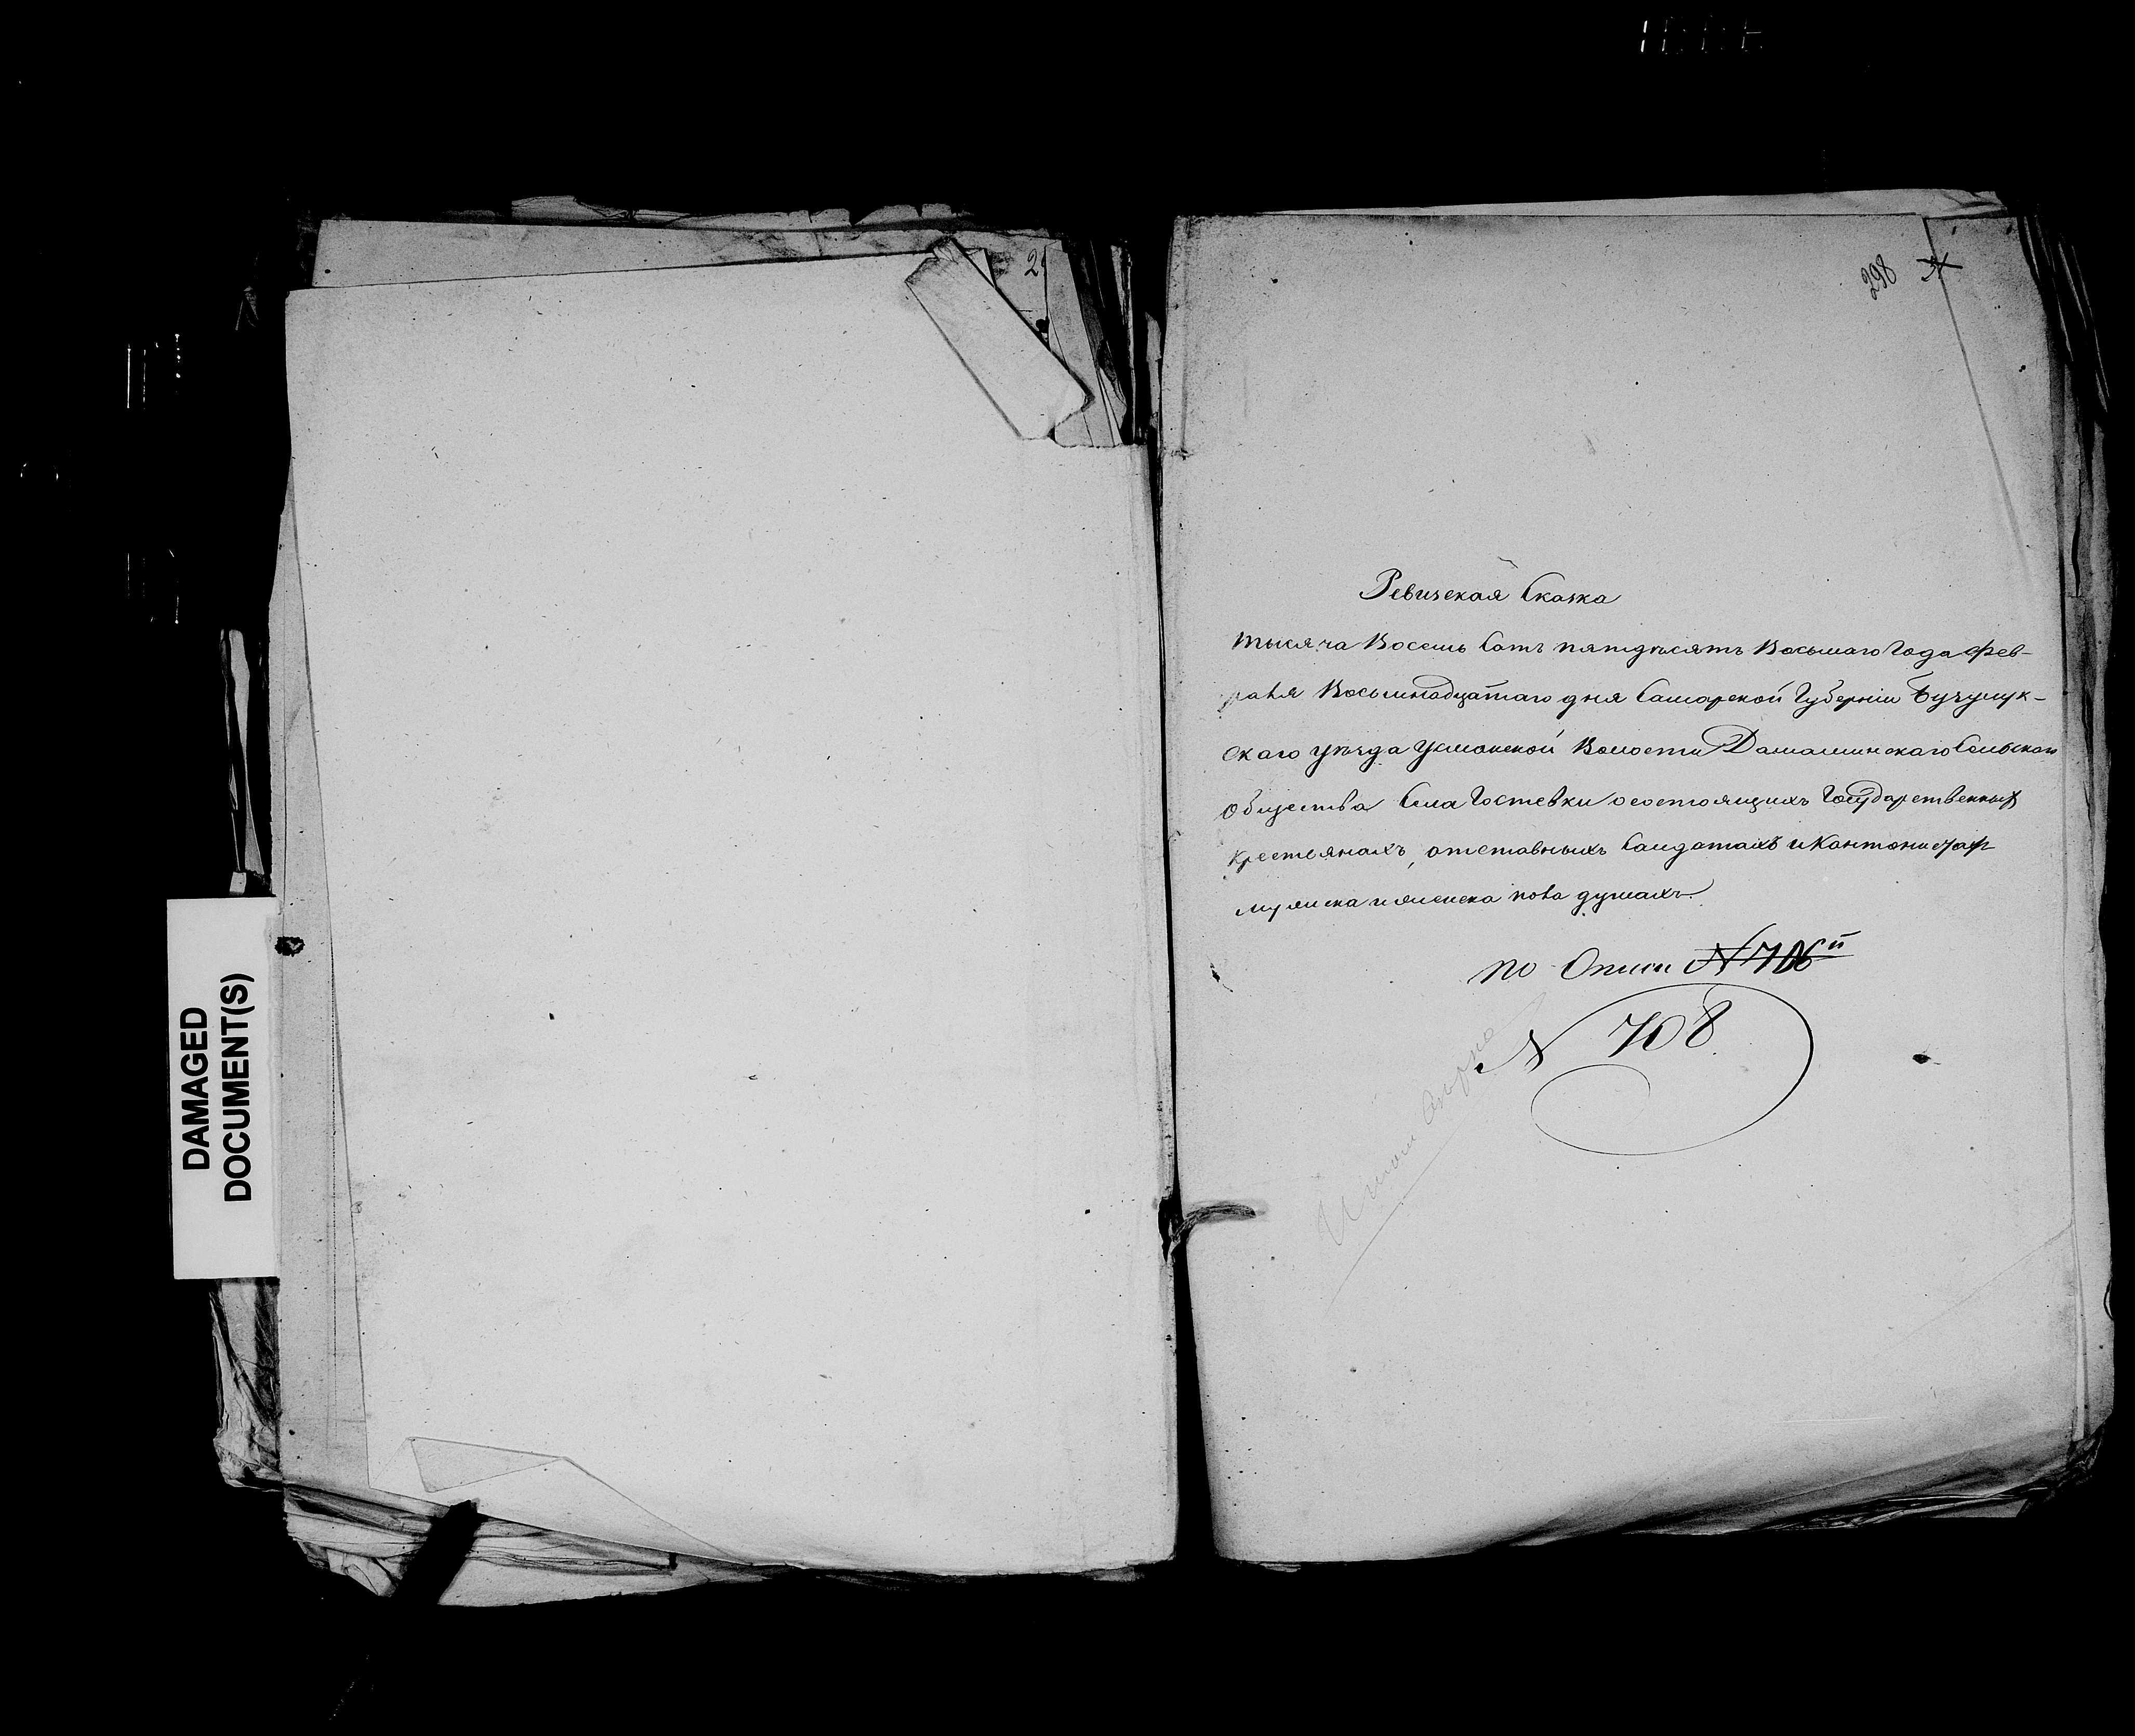 298
Ревизская Сказка
тысяча Восемь Сотъ пятдѣсятъ Восьмаго Года Фев-
раля Восьмнадцатаго дня Самарской Губерніи Бузулук-
скаго уѣзда Усманской Волости Домашинскаго Сельскаго
Общества Села Гостевки о состоящихъ Государственныхъ
крестьянахъ, отставныхъ Салдатахъ и Кантонистахъ
мужиска и женска пола душахъ.
по Описи N 706й
N 708
DAMAGED
DOCUMENT(S)